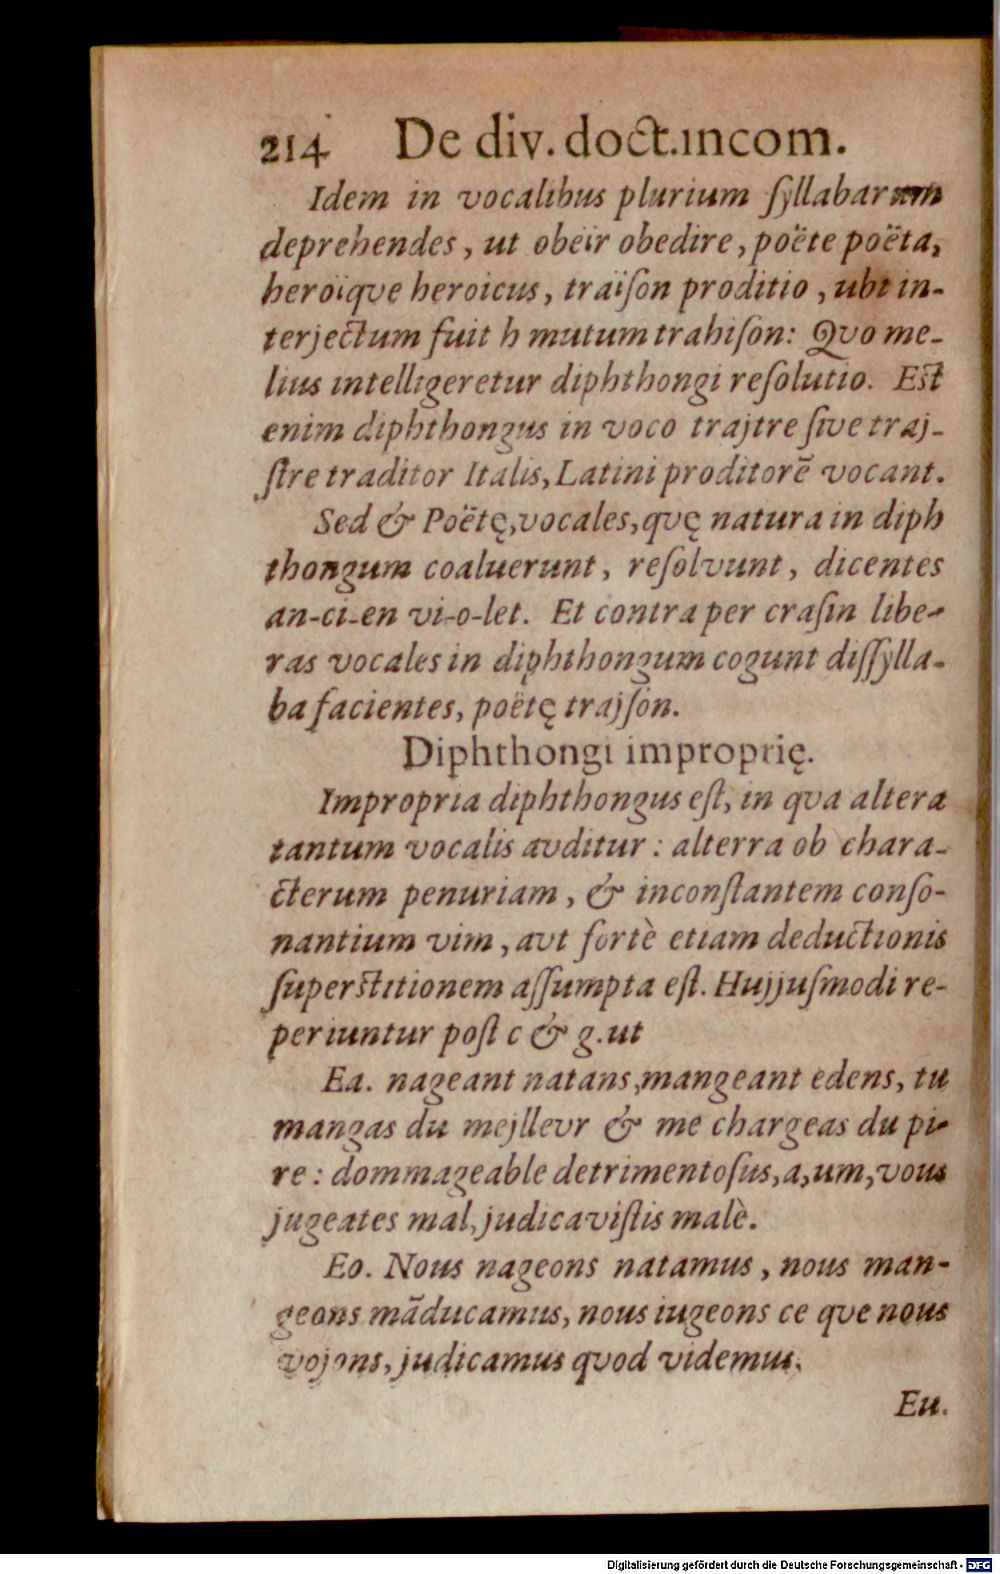 214 De div. doct.incom.
Idem in vocalibus plurium ſyllabarum
deprehendes, ut obeïr obedire, poëte poëta,
heroïqve heroicus, traïſon proditio, ubi in-
terjectum fuit h mutum trahiſon: Qvo me-
lius intelligeretur diphthongi reſolutio. Eſt
enim diphthongus in voco trajtre ſive traj-
ſtre traditor Italis, Latini proditorē vocant.
Sed & Poëtę, vocales, qvę natura in diph
thongum coaluerunt, reſolvunt, dicentes
an-ci-en vi-o-let. Et contra per craſin libe-
ras vocales in diphthongum cogunt diſſylla-
ba facientes, poëtę trajſon.
Diphthongi improprię.
Impropria diphthongus eſt, in qva altera
tantum vocalis avditur: alterra ob chara-
cterum penuriam, & inconſtantem conſo-
nantium vim, avt fortè etiam deductionis
ſuperſtitionem aſſumpta eſt. Hujjuſmodi re-
periuntur poſt c & g. ut
Ea. nageant natans, mangeant edens, tu
mangas du mejllevr & me chargeas du pi-
re: dommageable detrimentoſus, a, um, vous
jugeates mal, judicaviſtis malè.
Eo. Nous nageons natamus, nous man-
geons māducamus, nous iugeons ce qve nous
vojons, judicamus qvod videmus.
Eu.
Digitalisierung gefördert durch die Deutsche Forschungsgemeinschaft - DFG